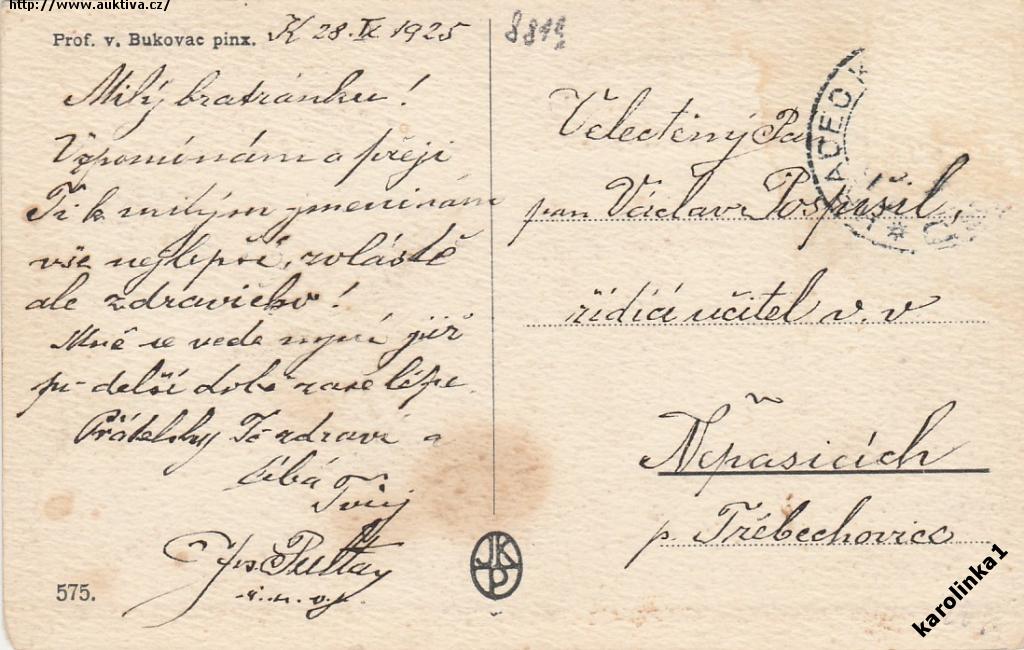 http://www.auktiva.cz/
Prof. v. Bukovac pinx.
K 28. IX 1925
8819
Milý bratránku!
Vzpomínám a přeji
Ti k milým jmeninám
vše nejlepší, zvláště
ale zdravíčko!
Mně se vede nyní již
po delší době zase lépe.
Přátelsky Tě zdraví a
líbá
Tvůj
575.
JKP
Velectěný Pan
pan Václav Pospíšil,
řídící učitel v. v
Nepasicích
p. Třebechovice
HRADEC K
karolinka1